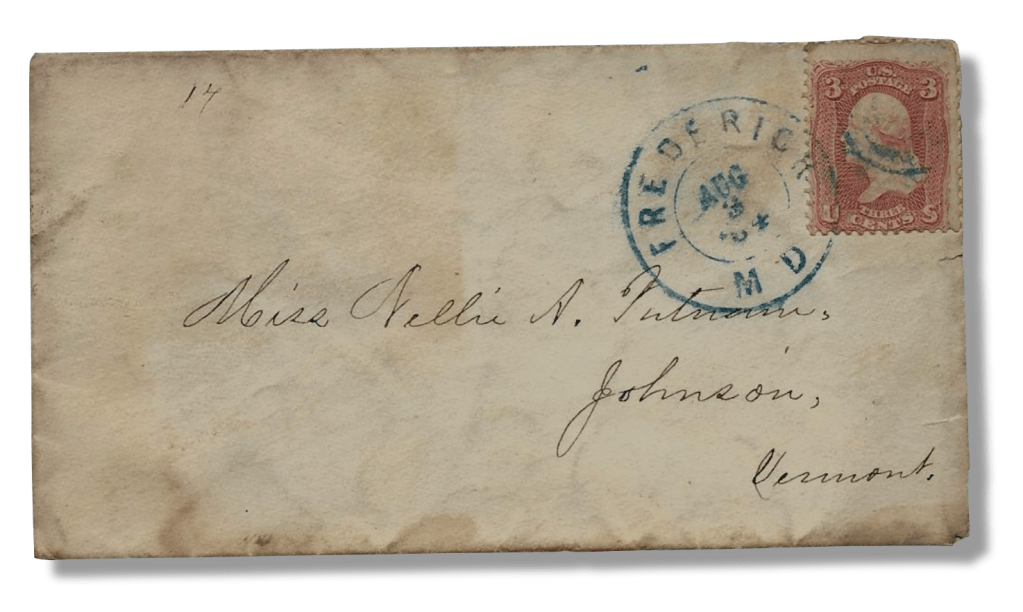 17
FREDERICK
AUG
3
MD
3 U.S. 3
POSTAGE
U THREE S
CENTS
Miss Nellie A. Putnam,
Johnson,
Vermont.